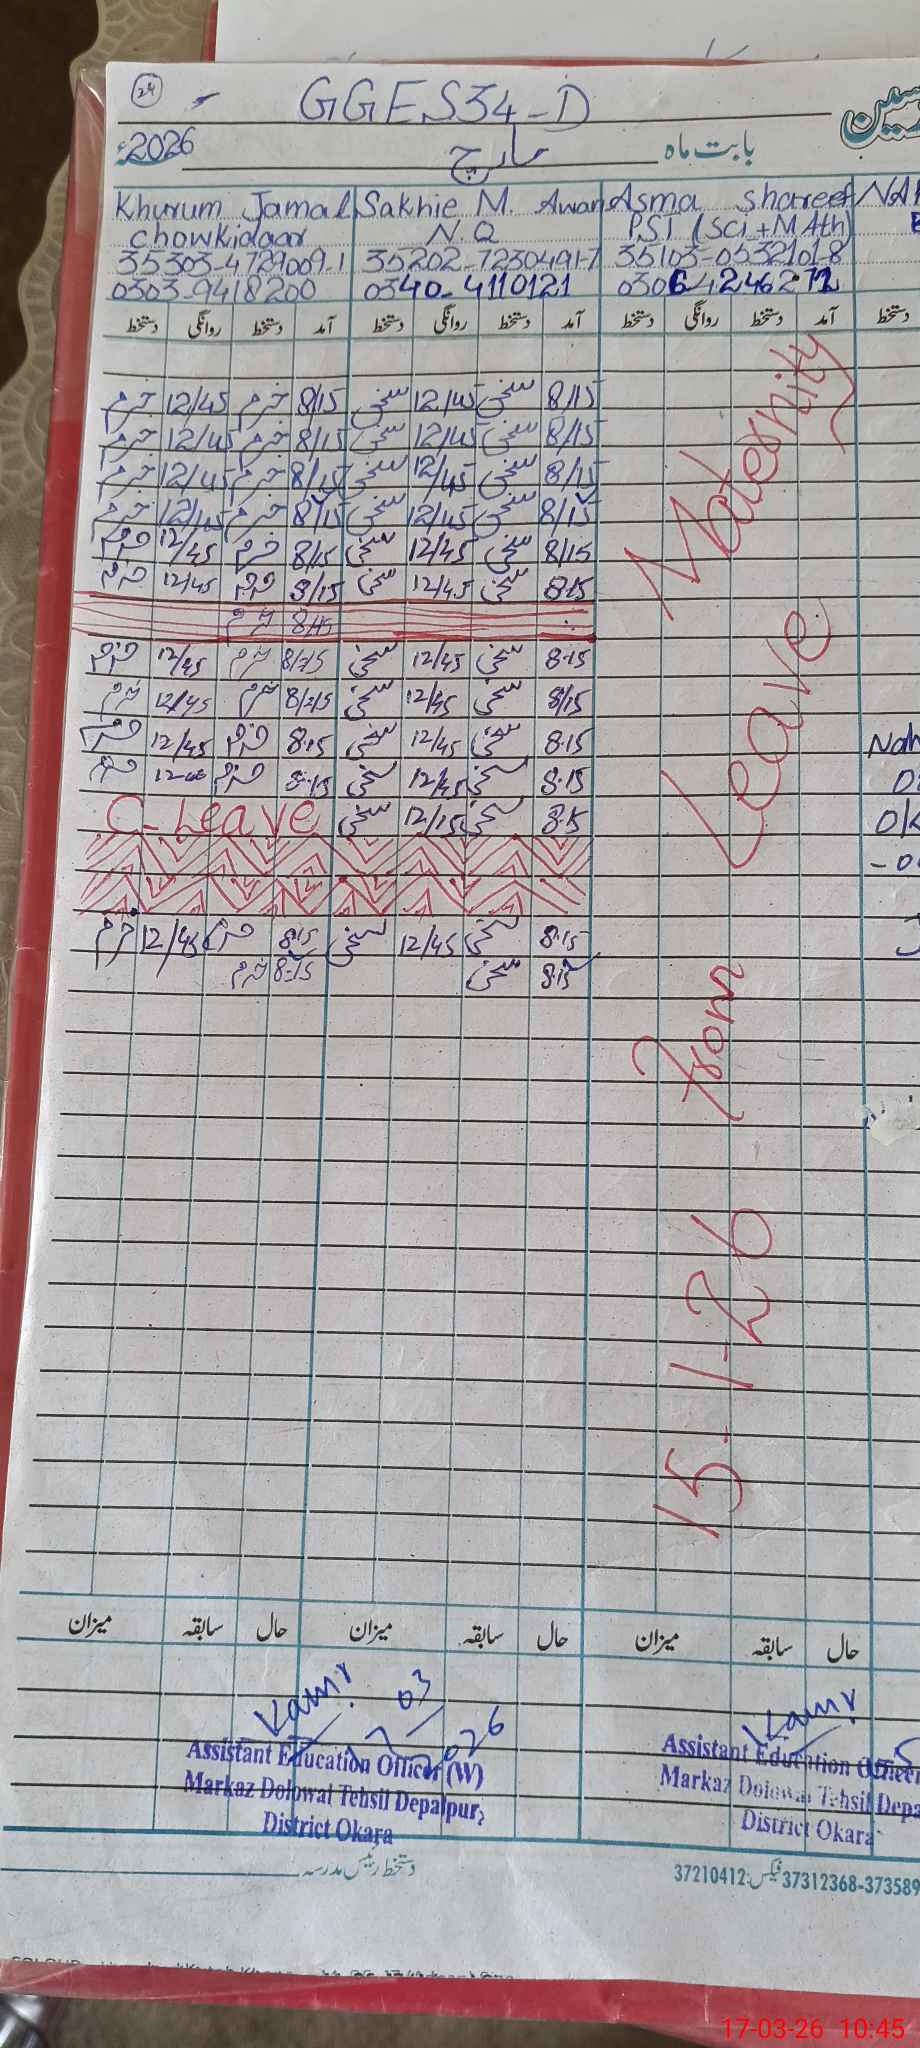 24
GGES34-D
2026ء
مارچ
بابت ماہ
Khurum Jamal Sakhie M. Awan Asma Shareef
Chowkidaar N.Q PST (Sci+MAth)
35303-4729009-1 35202-7230491-7 35103-0532101-8
0303-9418200 0340-4110121
آمد دستخط روانگی دستخط آمد دستخط روانگی دستخط آمد دستخط روانگی دستخط دستخط
خرم 12/45 خرم 8/15 سخی 12/45 سخی 8/15
خرم 12/45 خرم 8/15 سخی 12/45 سخی 8/15
خرم 12/45 خرم 8/15 سخی 12/45 سخی 8/15
خرم 12/45 خرم 8/15 سخی 12/45 سخی 8/15
خرم 12/45 خرم 8/15 سخی 12/45 سخی 8/15
خرم 12/45 خرم 8/15 سخی 12/45 سخی 8.15
خرم 8/15
خرم 12/45 خرم سخی 12/45 سخی 8.15
خرم 12/45 خرم سخی 12/45 سخی 8/15
خرم 12/45 خرم 8.15 سخی 12/45 سخی 8.15
خرم خرم 8.15 سخی 12/45 سخی 8.15
C-Leave سخی 12/15 سخی 8.15
خرم 12/45 خرم 8.15 سخی 12/45 سخی 8.15
خرم 8.15 سخی 8.15
Maternity Leave From 15-1-26
حال سابقہ میزان حال سابقہ میزان حال سابقہ میزان
Assistant Education Officer (W)
Markaz Dolowal Tehsil Depalpur,
District Okara
Assistant Education Officer
Markaz Dolowal Tehsil Depa
District Okara
دستخط رئیس مدرسہ
37210412:فیکس 37312368-373589
17-03-26 10:45